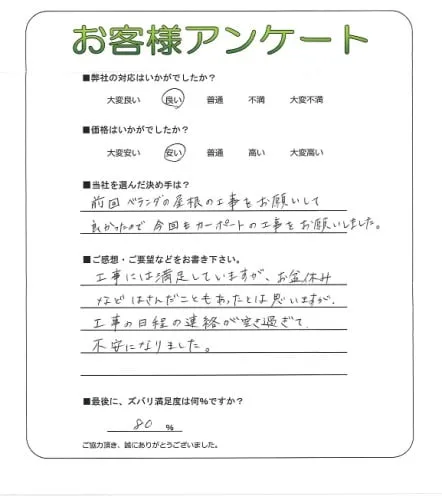 お客様アンケート
■弊社の対応はいかがでしたか？
大変良い 良い 普通 不満 大変不満
■価格はいかがでしたか？
大変安い 安い 普通 高い 大変高い
■当社を選んだ決め手は？
前回 ベランダの屋根の工事をお願いして
良かったので 今回もカーポートの工事をお願いしました。
■ご感想・ご要望などをお書き下さい。
工事には満足していますが、お盆休み
などはさんだこともあったとは思いますが、
工事の日程の連絡が空き過ぎて
不安になりました。
■最後に、ズバリ満足度は何%ですか？
80 %
ご協力頂き、誠にありがとうございました。